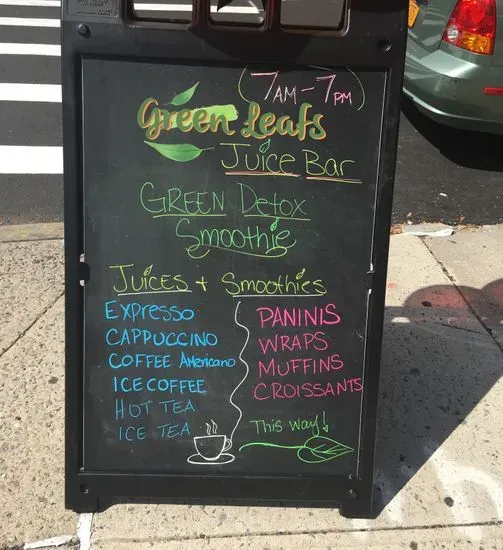 Green Leafs
Juice Bar
(7AM - 7PM)
Green Leafs
Juice Bar
GREEN Detox
Smoothie
Juices + Smoothies
Expresso
CAPPUCCINO
COFFEE Americano
ICE COFFEE
HOT TEA
ICE TEA
PANINIS
WRAPS
MUFFINS
CROISSANTS
This way!